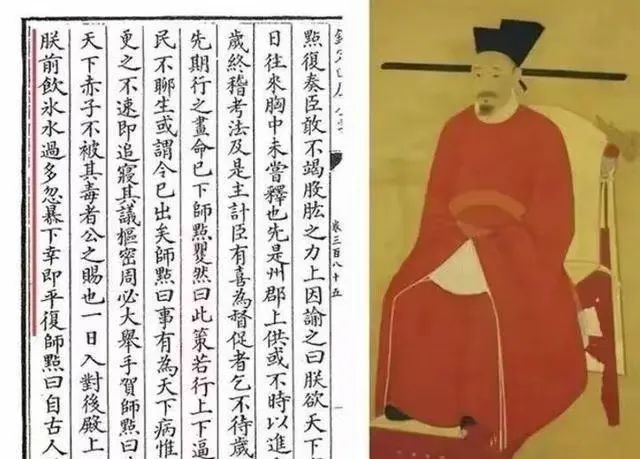 卷三百八十五
點復奏臣敢不竭股肱之力上因諭之曰朕欲天下
日往來胸中未嘗釋也先是州郡上供或不時以進
歲終稽考法及是主計臣有喜為督促者乞不待歲
先期行之畫命已下師點矍然曰此策若行上下逼
民不聊生或謂令已出矣師點曰事有為天下病惟
更之不速即追寢其議樞密周必大舉手賀師點曰
天下赤子不被其毒者公之賜也一日入對後殿上
朕前飲氷水過多忽暴下幸即平復師點曰自古人